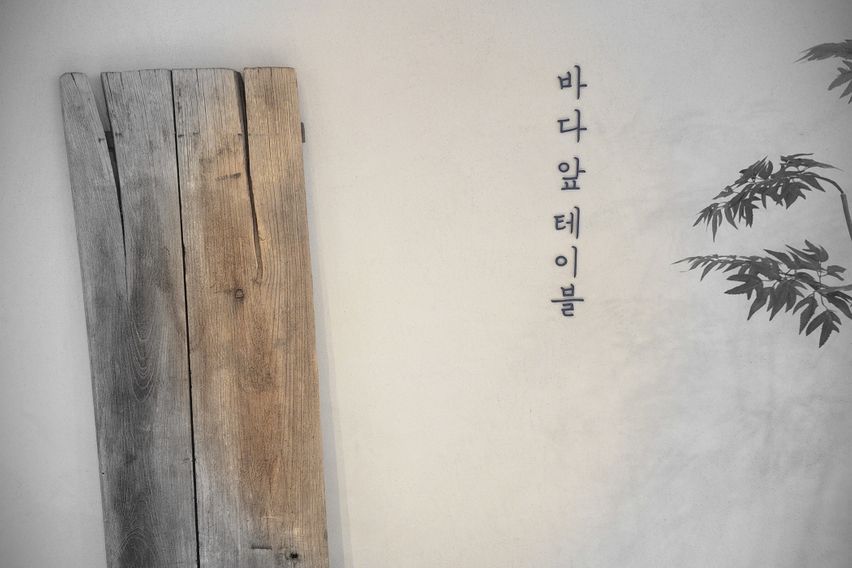 바다앞테이블